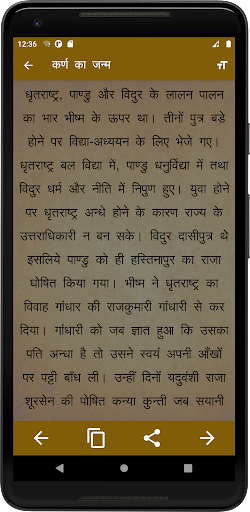 12:36
कर्ण का जन्म
धृतराष्ट्र, पाण्डु और विदुर के लालन पालन
का भार भीष्म के ऊपर था। तीनों पुत्र बड़े
होने पर विद्या-अध्ययन के लिए भेजे गए।
धृतराष्ट्र बल विद्या में, पाण्डु धनुर्विद्या में तथा
विदुर धर्म और नीति में निपुण हुए। युवा होने
पर धृतराष्ट्र अन्धे होने के कारण राज्य के
उत्तराधिकारी न बन सके। विदुर दासीपुत्र थे
इसलिये पाण्डु को ही हस्तिनापुर का राजा
घोषित किया गया। भीष्म ने धृतराष्ट्र का
विवाह गांधार की राजकुमारी गांधारी से कर
दिया। गांधारी को जब ज्ञात हुआ कि उसका
पति अन्धा है तो उसने स्वयं अपनी आँखों
पर पट्टी बाँध ली। उन्हीं दिनों यदुवंशी राजा
शूरसेन की पोषित कन्या कुन्ती जब सयानी